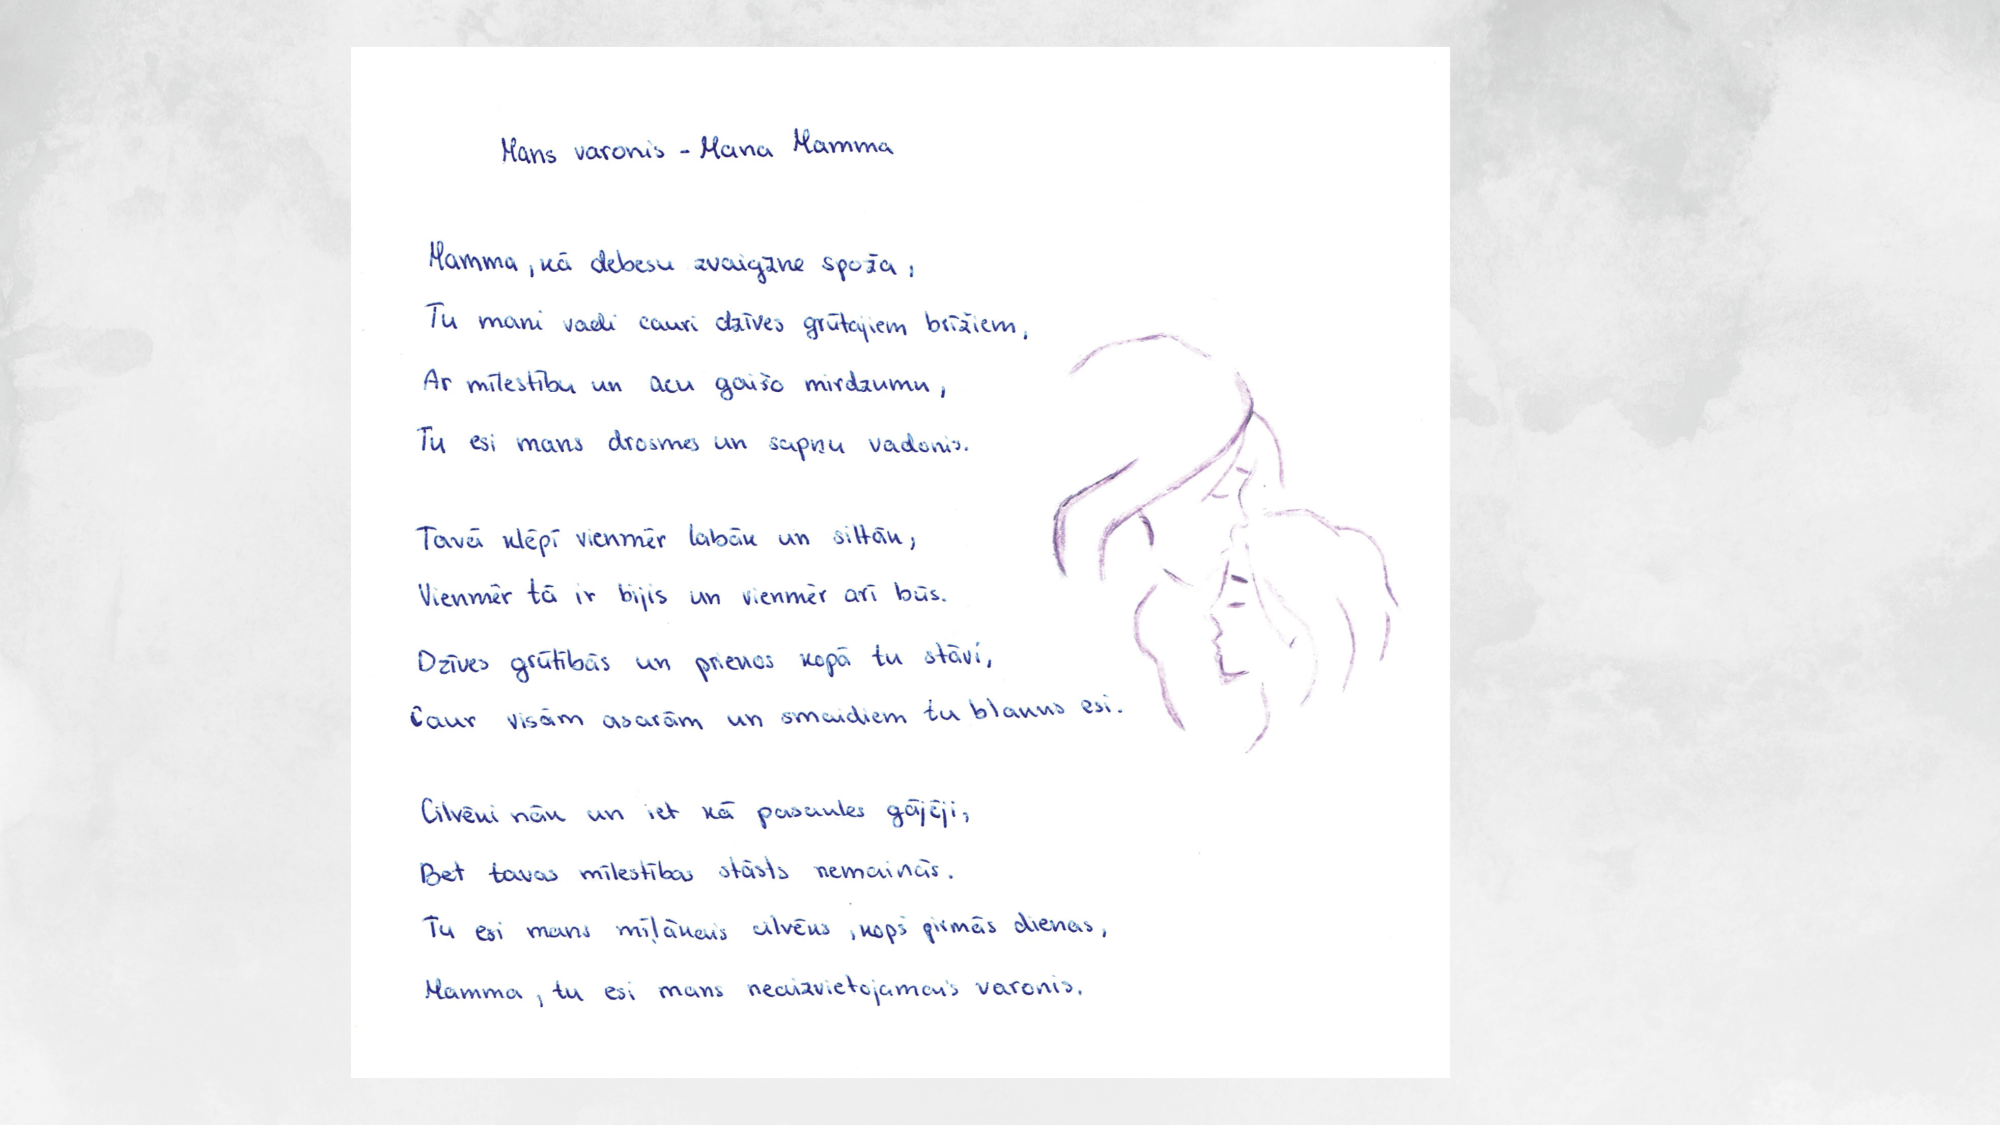 Mans varonis - Mana Mamma
Mamma, kā debesu zvaigzne spoža,
Tu mani vadi cauri dzīves grūtajiem brīžiem,
Ar mīlestību un acu gaišo mirdzumu,
Tu esi mans drosmes un sapņu vadonis.
Tavā klēpī vienmēr labāk un siltāk,
Vienmēr tā ir bijis un vienmēr arī būs.
Dzīves grūtībās un priekos kopā tu stāvi,
Caur visām asarām un smaidiem tu blakus esi.
Cilvēki nāk un iet kā pasaules gājēji,
Bet tavas mīlestības stāsts nemainās.
Tu esi mans mīļākais cilvēks, kopš pirmās dienas,
Mamma, tu esi mans neaizvietojamais varonis.